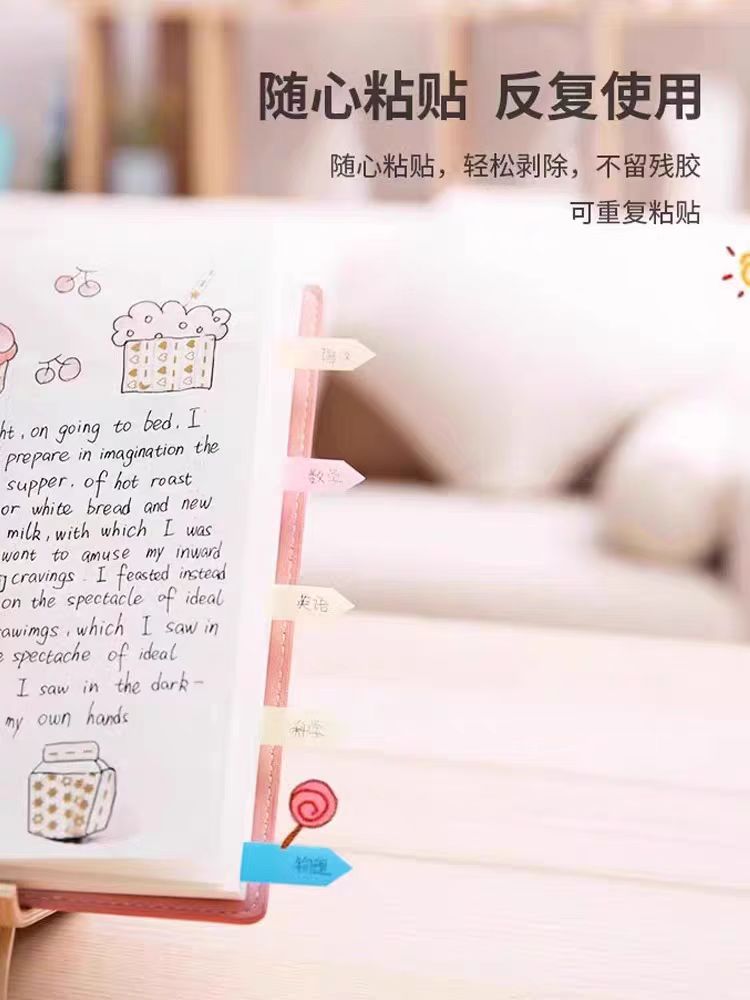 随心粘贴 反复使用
随心粘贴，轻松剥除，不留残胶
可重复粘贴
ht, on going to bed, I
prepare in imagination the
supper. of hot roast
or white bread and new
milk, with which I was
wont to amuse my inward
cravings. I feasted instead
on the spectacle of ideal
awimgs, which I saw in
spectache of ideal
I saw in the dark-
my own hands
语文
数学
英语
科学
物理